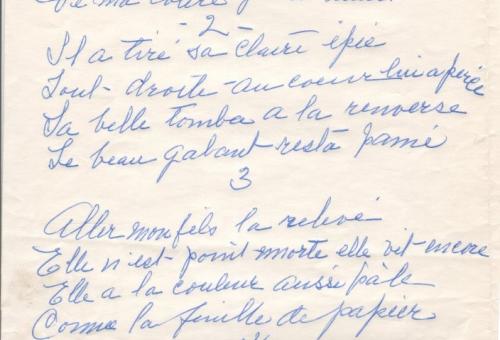 -2-
Il a tiré sa claire épie
Tout-droite-au coeur lui a percé
La belle tomba a la renverse
Le beau gabant resta pamé
3
Aller mon fils la relevé
Elle n'est point morte elle vit encore
Elle a la couleur aussi pâle
Comme la feuille de papier